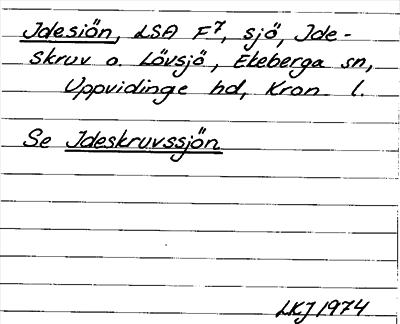 Idesjön, LSA F7, sjö, Ide-
skruv o. Lövsjö, Ekeberga sn,
Uppvidinge hd, Kron. l.
Se Ideskruvssjön
LKJ 1974